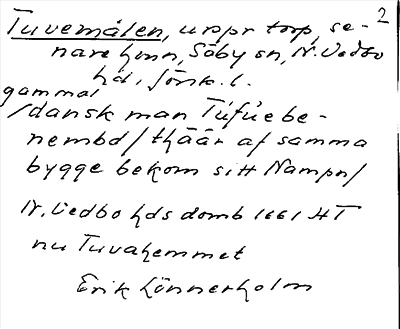 2
Tuvemålen, urspr torp, se-
nare hmn, Säby sn, N. Vedbo
hd, Jönk. l.
gammal
/dansk man Túfúe be-
nembd/thäär af samma
bygge bekom sitt Nampn/
N. Vedbo hds domb 1661 HT
nu Tuvahemmet
Erik Lönnerholm